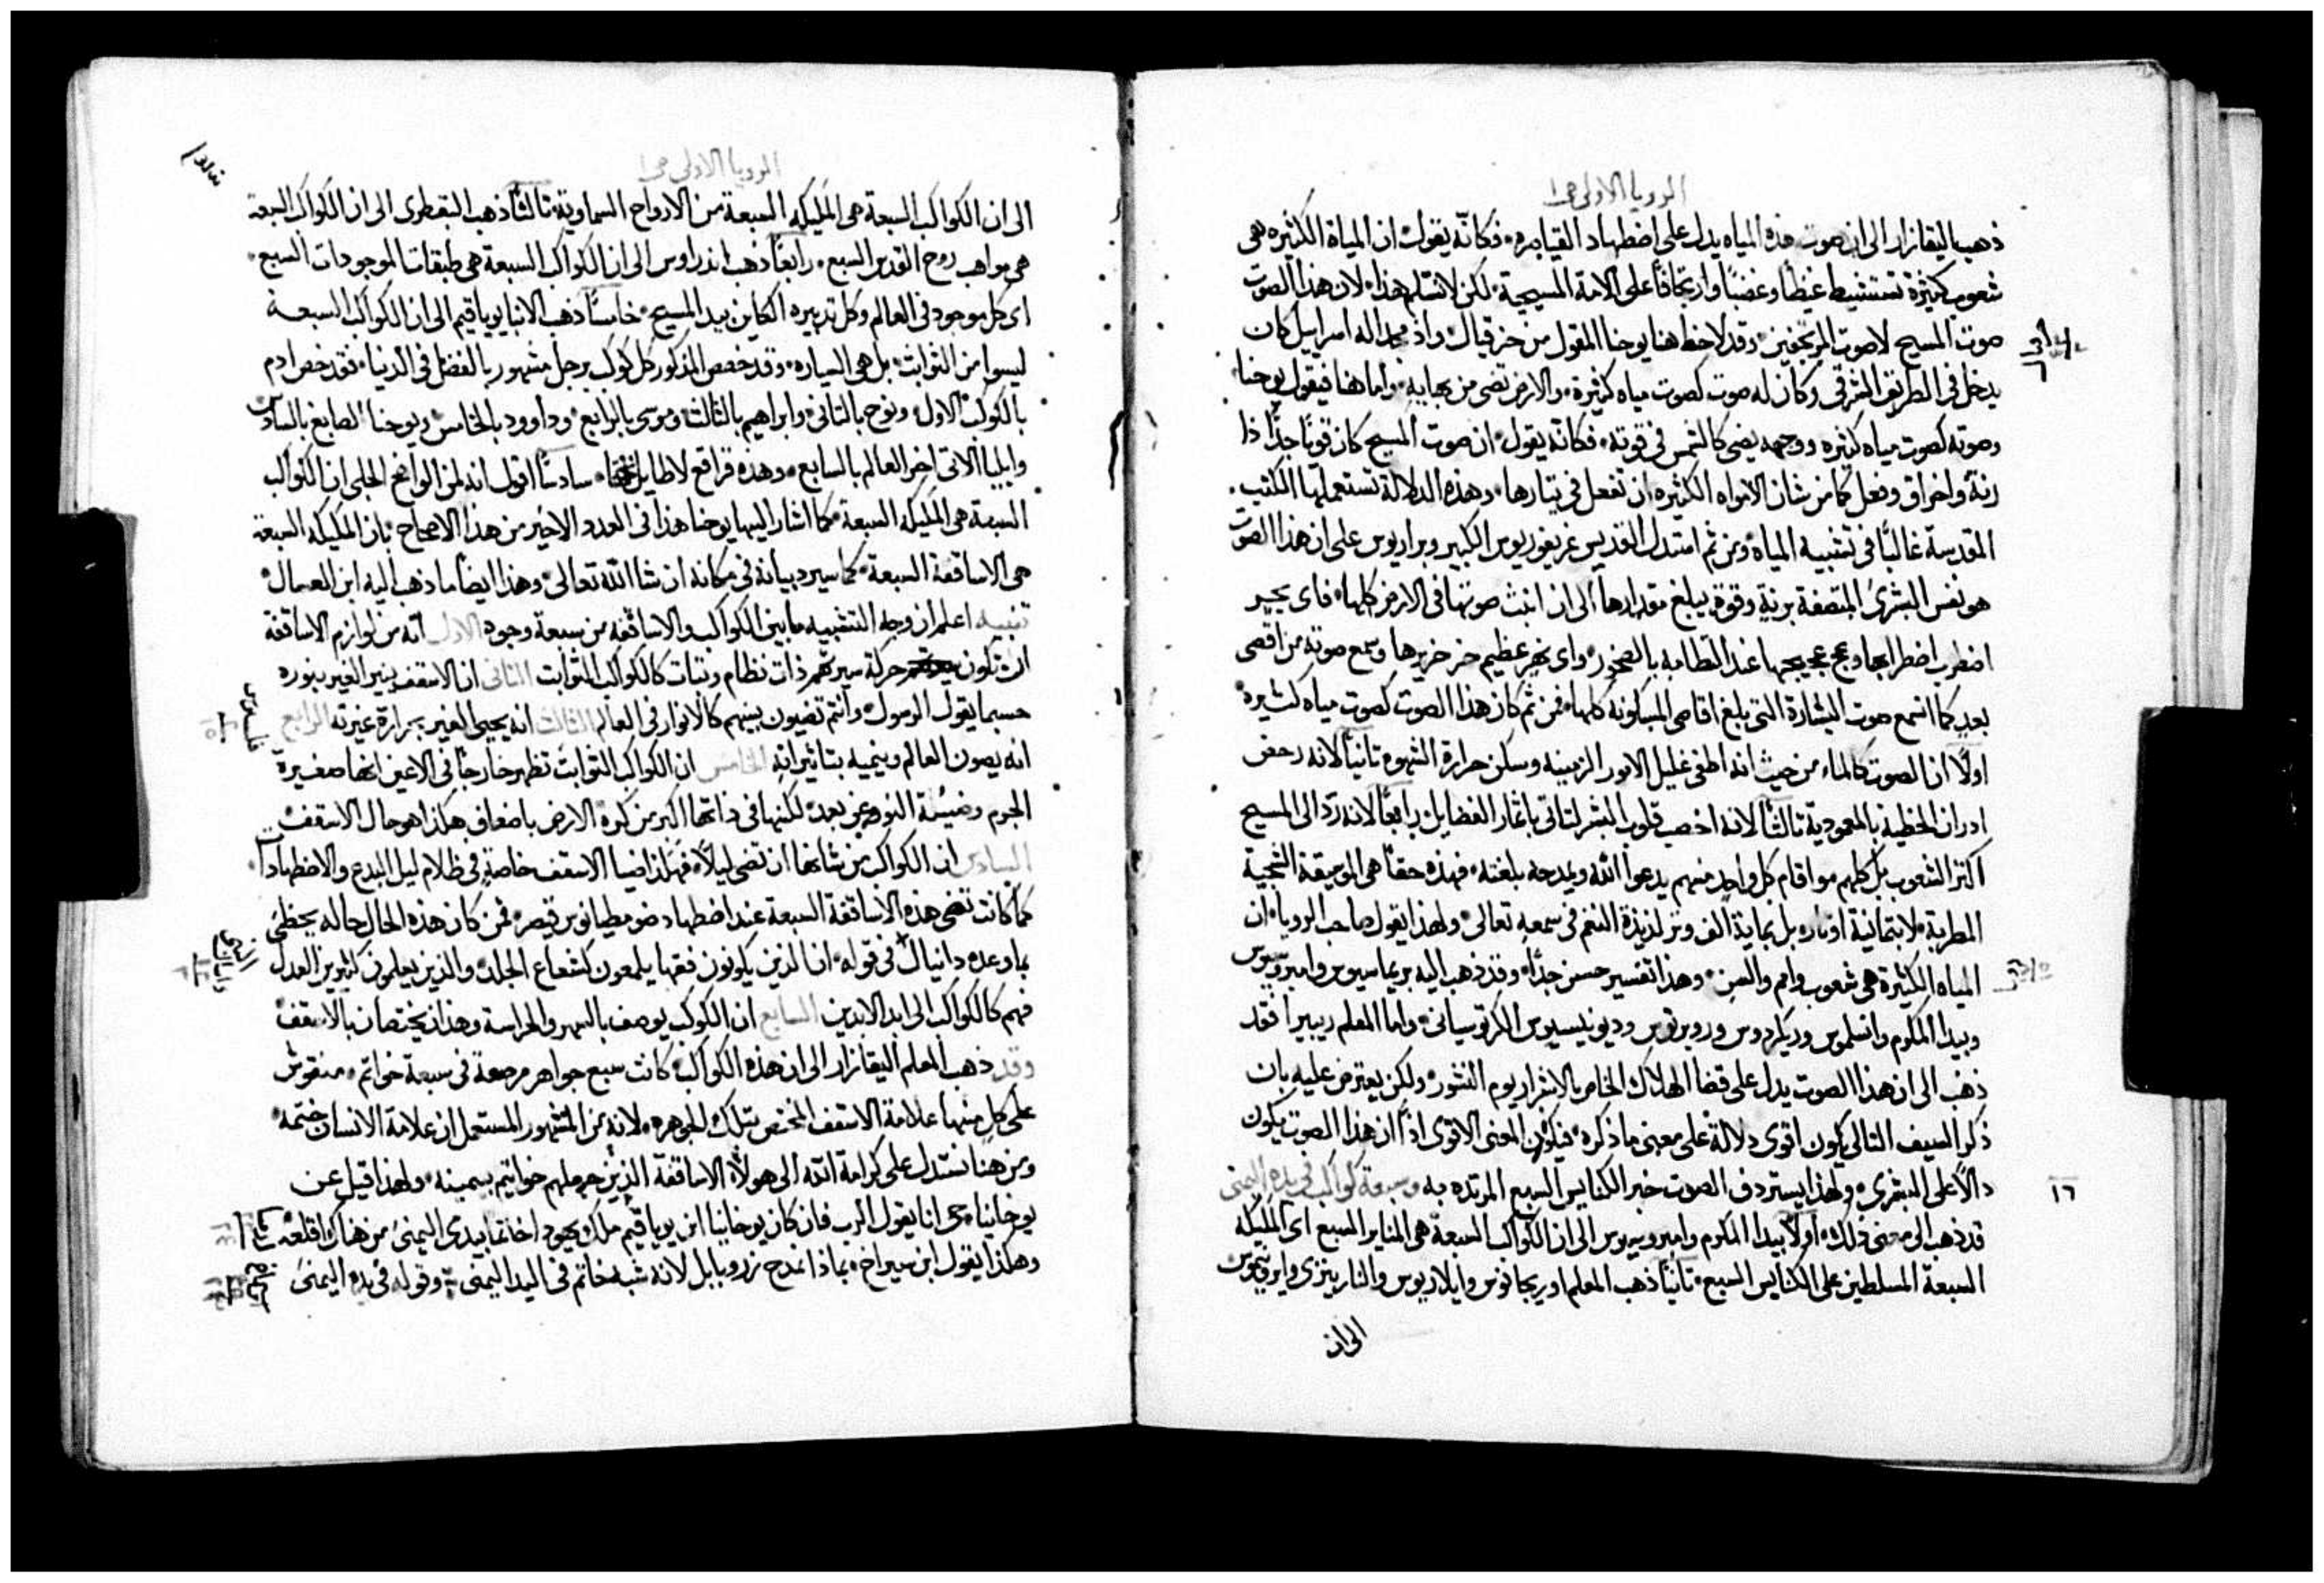 الرويا الاولى ص١
ذهب اليقازار الى ان صوت هذه المياه يدل على اضطهاد القياصره، فكانّه يقول ان المياة الكثيره هى
شعوب كثيرة تستشيط غيظًا وغضبًا وارتجافًا على الامة المسيحية، لكن لا نسلم هذا، لان هذا الصوت
صوت المسيح لا صوت المرتجفين، وقد لاحظ هنا يوحنا المقول من حزقيال، واذ مجد اله اسراييل كان
يدخل فى الطريق الشرقى وكان له صوت كصوت مياه كثيرة، والارض تضى من بهايه، واما هنا فيقول يوحنا
وصوته كصوت مياه كثيره ووجهه يضى كالشمس فى قوته، فكانه يقول، ان صوت المسيح كان قويًا جدًا ذا
رنة واخراق وفعل كما من شان الامواه الكثيره ان تفعل فى تيارها، وهذه الدلالة تستعملها الكتب
المقدسة غالبًا فى تشبيه المياه، ومن ثم استدل القديس غريغوريوس الكبير وبراريوس على ان هذا الصوت
هو نفس البشرى المتصفة برنةٍ وقوةٍ يبلغ مقدارها الى ان انبث صوتها فى الارض كلها، فاى بحير
اضطرب اضطرابها وعج عجيجها عند التطامه بالصخور، واى نهر عظيم خر خريرها وسمع صوته من اقصى
بعدٍ كما انسمع صوت البشارة التى بلغ اقاصى المسكونه كلها، فمن ثم كان هذا الصوت كصوت مياه كثيرة
اولًا ان الصوت كالماء من حيث انه اطفى غليل الامور الزمنيه وسكن حرارة الشهوة ثانيًا لانه رحض
ادران الخطية بالمعمودية ثالثًا لانه اخصب قلوب البشر لتاتى باثمار الفضايل رابعًا لانه ردّ الى المسيح
اكثر الشعوب بل كلهم مواقام كل واحد منهم يدعوا الله ويمدحه بلغته، فهذه حقًا هى الموسيقة الشجية
المطربة، لا بثمانية اوتار، بل بماية الف وتر لذيذة النغم فى سمعه تعالى، ولهذا يقول صاحب الرويا، ان
المياه الكثيرة هى شعوب وامم والسن، وهذا تفسير حسن جدًا، وقد ذهب اليه بريماسيوس وامبروسيوس
وبيدا المكرم وانسلموس وريكردوس وروبرتوس وديونيسيوس الكرتوسيانى، واما المعلم ريبيرا فقد
ذهب الى ان هذا الصوت يدل على قضا الهلاك الخاص بالاشرار يوم النشور، ولكن يعترض عليه بان
ذكر السيف التالى يكون اقوى دلالة على معنى ما ذكره، فيكون المعنى الاقوى اذًا ان هذا الصوت يكون
دالًا على البشرى، ولهذا يستردف الصوت خبر الكنايس السبع المرتده به وسبعة كواكب فى يده اليمنى
١٦
قد ذهب الى معنى ذلك، اولًا بيدا المكرم وامبروسيوس الى ان الكواكب السبعة هى المناير السبع اى المليكه
السبعة المسلطين على الكنايس السبع، ثانيًا ذهب المعلم اوريجانوس وايلاريوس والنازينزى وايرونيموس
الى ان
الرويا الاولى ص١
الى ان الكواكب السبعة هى المليكه السبعة من الارواح السماوية، ثالثًا ذهب البقطرى الى ان الكواكب السبعة
هى مواهب روح القدس السبع، رابعًا ذهب اندراوس الى ان الكواكب السبعة هى طبقات الموجودات السبع،
اى كل موجود فى العالم وكل تدبيره الكاين بيد المسيح، خامسًا ذهب الانبا يوياقيم الى ان الكواكب السبعة
ليسوا من الثوابت، بل هى السياره، وقد خصص المذكور كل كوكب برجل مشهور بالفضل فى الدنيا، فقد خص ادم
بالكوكب الاول، ونوح بالثانى، وابراهيم بالثالث، وموسى بالرابع، وداوود بالخامس، ويوحنا الصابغ بالسادس
وايليا الاتى اخر العالم بالسابع، وهذه قراقع لا طايل تحتها، سادسًا اقول انه لمن الواضح الجلى ان الكواكب
السبعة هى المليكه السبعة، كما اشار اليها يوحنا هذا فى العدد الاخير من هذا الاصحاح، بان المليكه السبعة
هى الاساقفة السبعة، كما سيرد بيانه فى مكانه ان شا الله تعالى، وهذا ايضًا ما ذهب اليه ابن العسال
تنبيه اعلم ان وجه التشبيه ما بين الكواكب والاساقفه من سبعة وجوه الاول انه من لوازم الاساقفة
ان تكون حركة سيرتهم ذات نظام وثبات كالكواكب الثوابت الثانى ان الاسقف ينير الغير بنوره
حسبما يقول الرسول، وانتم تضيون بينهم كالانوار فى العالم الثالث انه يحيى الغير بحرارة غيرته الرابع
انه يصون العالم وينميه بتاثيراته الخامس ان الكواكب الثوابت تظهر خارجًا فى الاعين انها صغيرة
الجرم وضييلة النور عن بعد، لكنها فى ذاتها اكبر من كرة الارض باضعاف، هكذا هو حال الاسقف
السادس ان الكواكب من شانها ان تضى ليلًا، فهكذا ضيا الاسقف خاصةٍ فى ظلام ليل البدع والاضطهادات
كما كانت تضى هذه الاساقفة السبعة عند اضطهاد ضوميطيانوس قيصر، فمن كان هذه الحال حاله يحظى
بما وعده دانيال فى قوله، ان الذين يكونون فقها يلمعون كشعاع الجلد، والذين يعلمون كثيرين العدل
فهم كالكواكب الى ابد الابدين السابع ان الكوكب يوصف بالسهر والحراسة وهذان يختصان بالاسقف
وقد ذهب المعلم اليقازار الى ان هذه الكواكب كانت سبع جواهر مرصعة فى سبعة خواتم، منقوش
على كلٍ منها علامة الاسقف المختص بتلك الجوهره، لانه من المشهور المستعمل ان علامة الانسان ختمه
ومن هنا نستدل على كرامة الله الى هولاء الاساقفة الذين جعلهم خواتيم بيمينه، ولهذا قيل عن
يوخانيا، حى انا يقول الرب فان كان يوخانيا ابن يوياقيم ملك يهودا خاتمًا بيدى اليمنى، من هناك اقلعه
وهكذا يقول ابن سيراخ، بماذا نمدح زروبابل لانه شبه خاتم فى اليد اليمنى، وقوله فى يده اليمنى